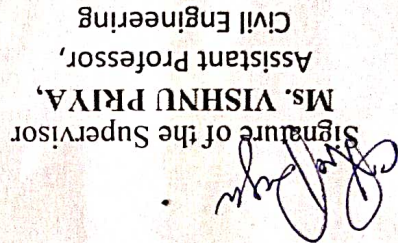 Signature of the Supervisor
Ms. VISHNU PRIYA,
Assistant Professor,
Civil Engineering